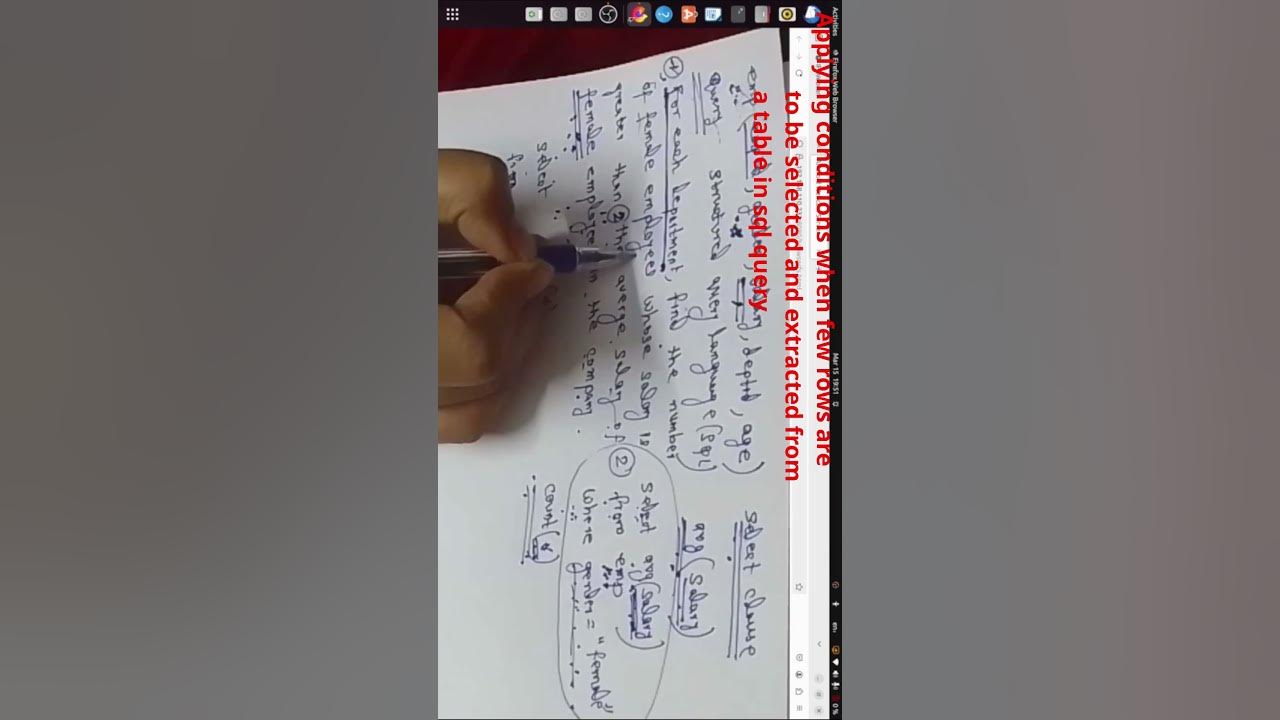 Activities
Firefox Web Browser
Mar 15 19:51
en
0 %
Applying conditions when few rows are
to be selected and extracted from
a table in sql query
emp (empid, gender, salary, deptid, age)
query structured query language (sql)
1 For each department, find the number
of female employees whose salary is
greater than 2 the averge salary of
female employee in the company.
select
from
select clause
avg(salary)
2 select avg(salary)
from emp
where gender = "female"
count(